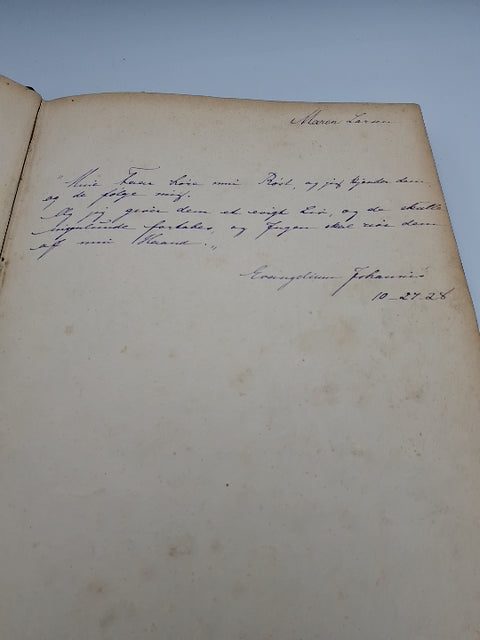 Maren Larsen
"Mine Faar høre min Røst, og jeg kjender dem,
og de følge mig.
Og jeg giver dem et evigt Liv, og de skulle
ingenlunde fortabes, og Ingen skal rive dem
af min Haand.„
Evangelium Johannis
10-27-28